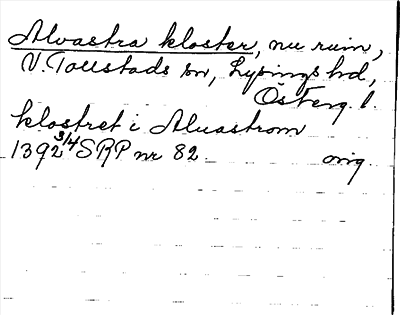 Alvastra kloster, nu ruin,
V. Tollstads sn, Lysings hd,
Österg. l.
klostret i Aluastrom
1392 3/4 SRP nr 82 orig.